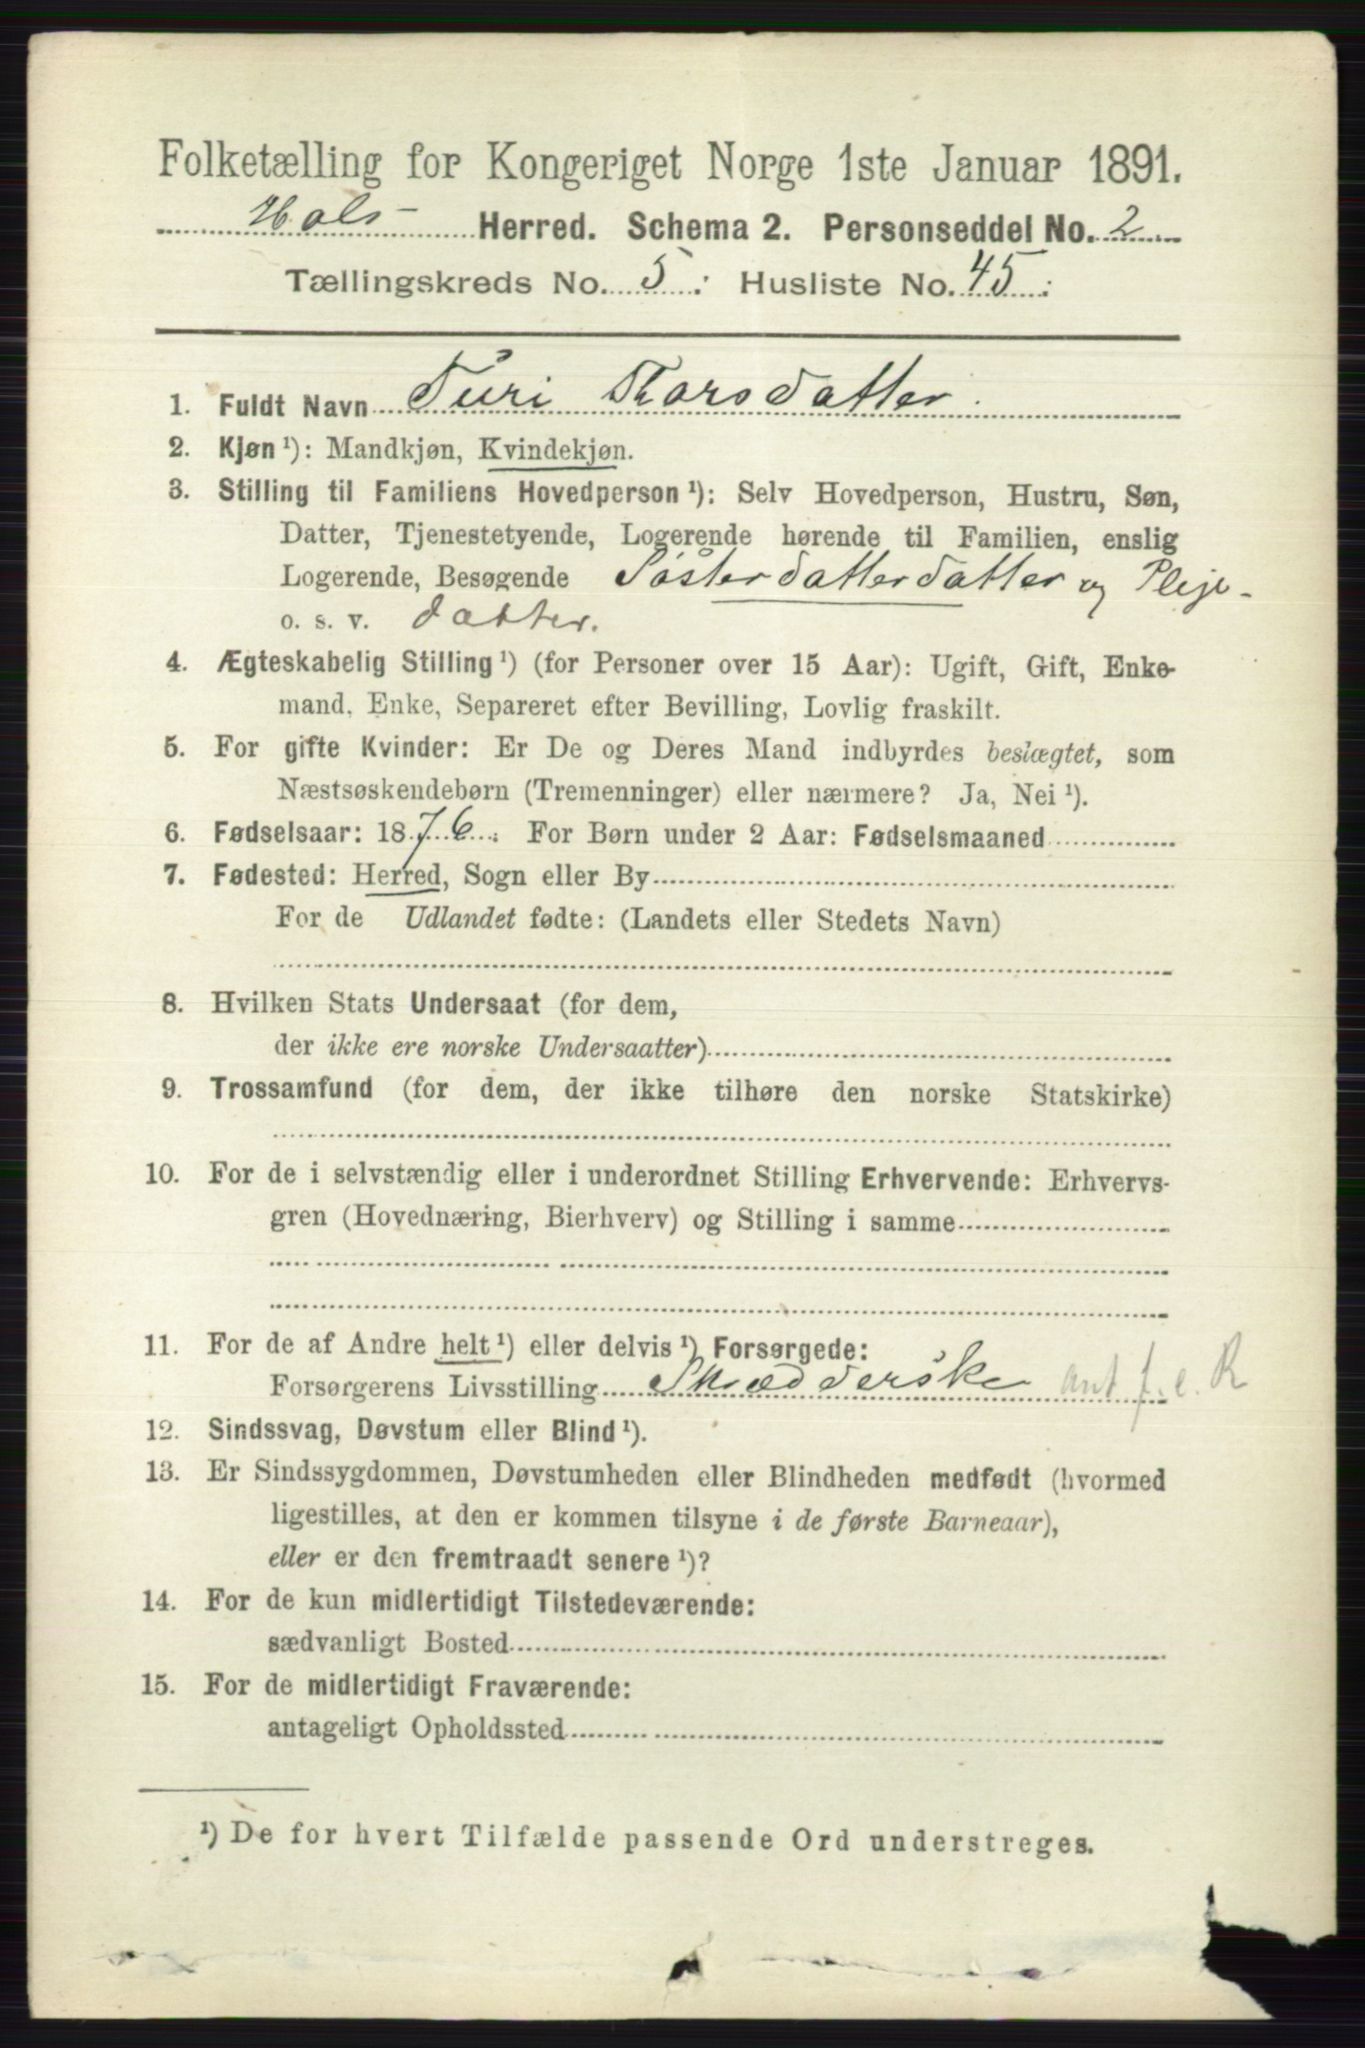 Folketælling for Kongeriget Norge 1ste Januar 1891.
Hols Herred. Schema 2. Personseddel No. 2
Tællingskreds No. 5. Husliste No. 45.
1. Fuldt Navn Turi Tharsdatter.
2. Kjøn ¹): Mandkjøn, Kvindekjøn.
3. Stilling til Familiens Hovedperson ¹): Selv Hovedperson, Hustru, Søn,
Datter, Tjenestetyende, Logerende hørende til Familien, enslig
Logerende, Besøgende Søsterdatterdatter og Pleje-
o. s. v. datter.
4. Ægteskabelig Stilling ¹) (for Personer over 15 Aar): Ugift, Gift, Enke-
mand, Enke, Separeret efter Bevilling, Lovlig fraskilt.
5. For gifte Kvinder: Er De og Deres Mand indbyrdes beslægtet, som
Næstsøskendebørn (Tremenninger) eller nærmere? Ja, Nei ¹).
6. Fødselsaar: 1876. For Børn under 2 Aar: Fødselsmaaned
7. Fødested: Herred, Sogn eller By
For de Udlandet fødte: (Landets eller Stedets Navn)
8. Hvilken Stats Undersaat (for dem,
der ikke ere norske Undersaatter)
9. Trossamfund (for dem, der ikke tilhøre den norske Statskirke)
10. For de i selvstændig eller i underordnet Stilling Erhvervende: Erhvervs-
gren (Hovednæring, Bierhverv) og Stilling i samme
11. For de af Andre helt ¹) eller delvis ¹) Forsørgede:
Forsørgerens Livsstilling Skrædderske ant f. e. R
12. Sindssvag, Døvstum eller Blind ¹).
13. Er Sindssygdommen, Døvstumheden eller Blindheden medfødt (hvormed
ligestilles, at den er kommen tilsyne i de første Barneaar),
eller er den fremtraadt senere ¹)?
14. For de kun midlertidigt Tilstedeværende:
sædvanligt Bosted
15. For de midlertidigt Fraværende:
antageligt Opholdssted
¹) De for hvert Tilfælde passende Ord understreges.